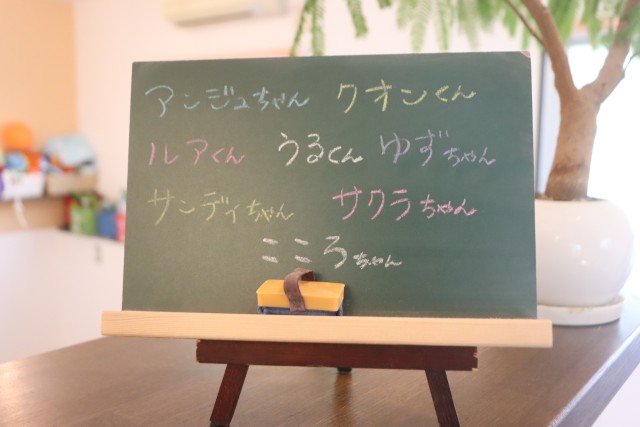 アンジュちゃん クオンくん
ルアくん うるくん ゆずちゃん
サンディちゃん サクラちゃん
こころちゃん